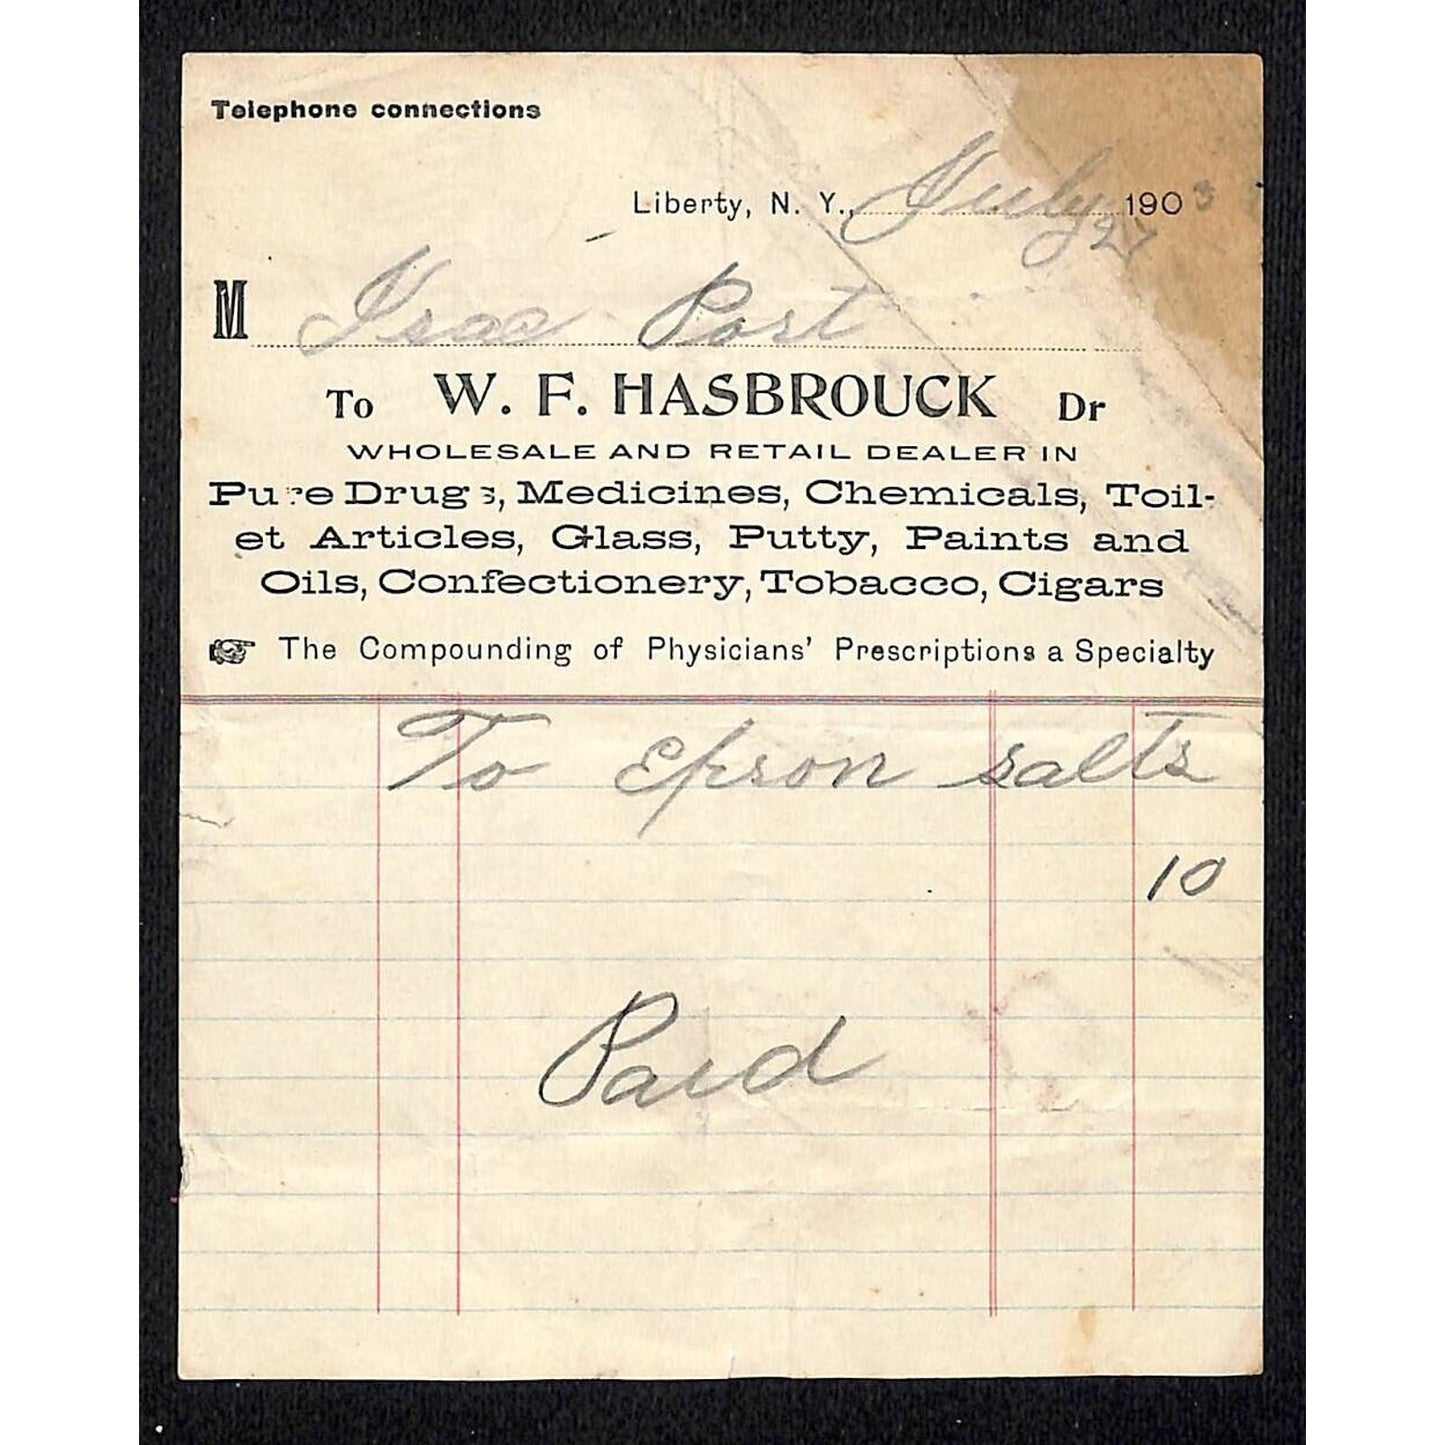 Telephone connections
Liberty, N. Y., July 27 1903
M Isac Post
To W. F. HASBROUCK Dr
WHOLESALE AND RETAIL DEALER IN
Pure Drugs, Medicines, Chemicals, Toil-
et Articles, Glass, Putty, Paints and
Oils, Confectionery, Tobacco, Cigars
The Compounding of Physicians' Prescriptions a Specialty
To Epson salts
10
Paid